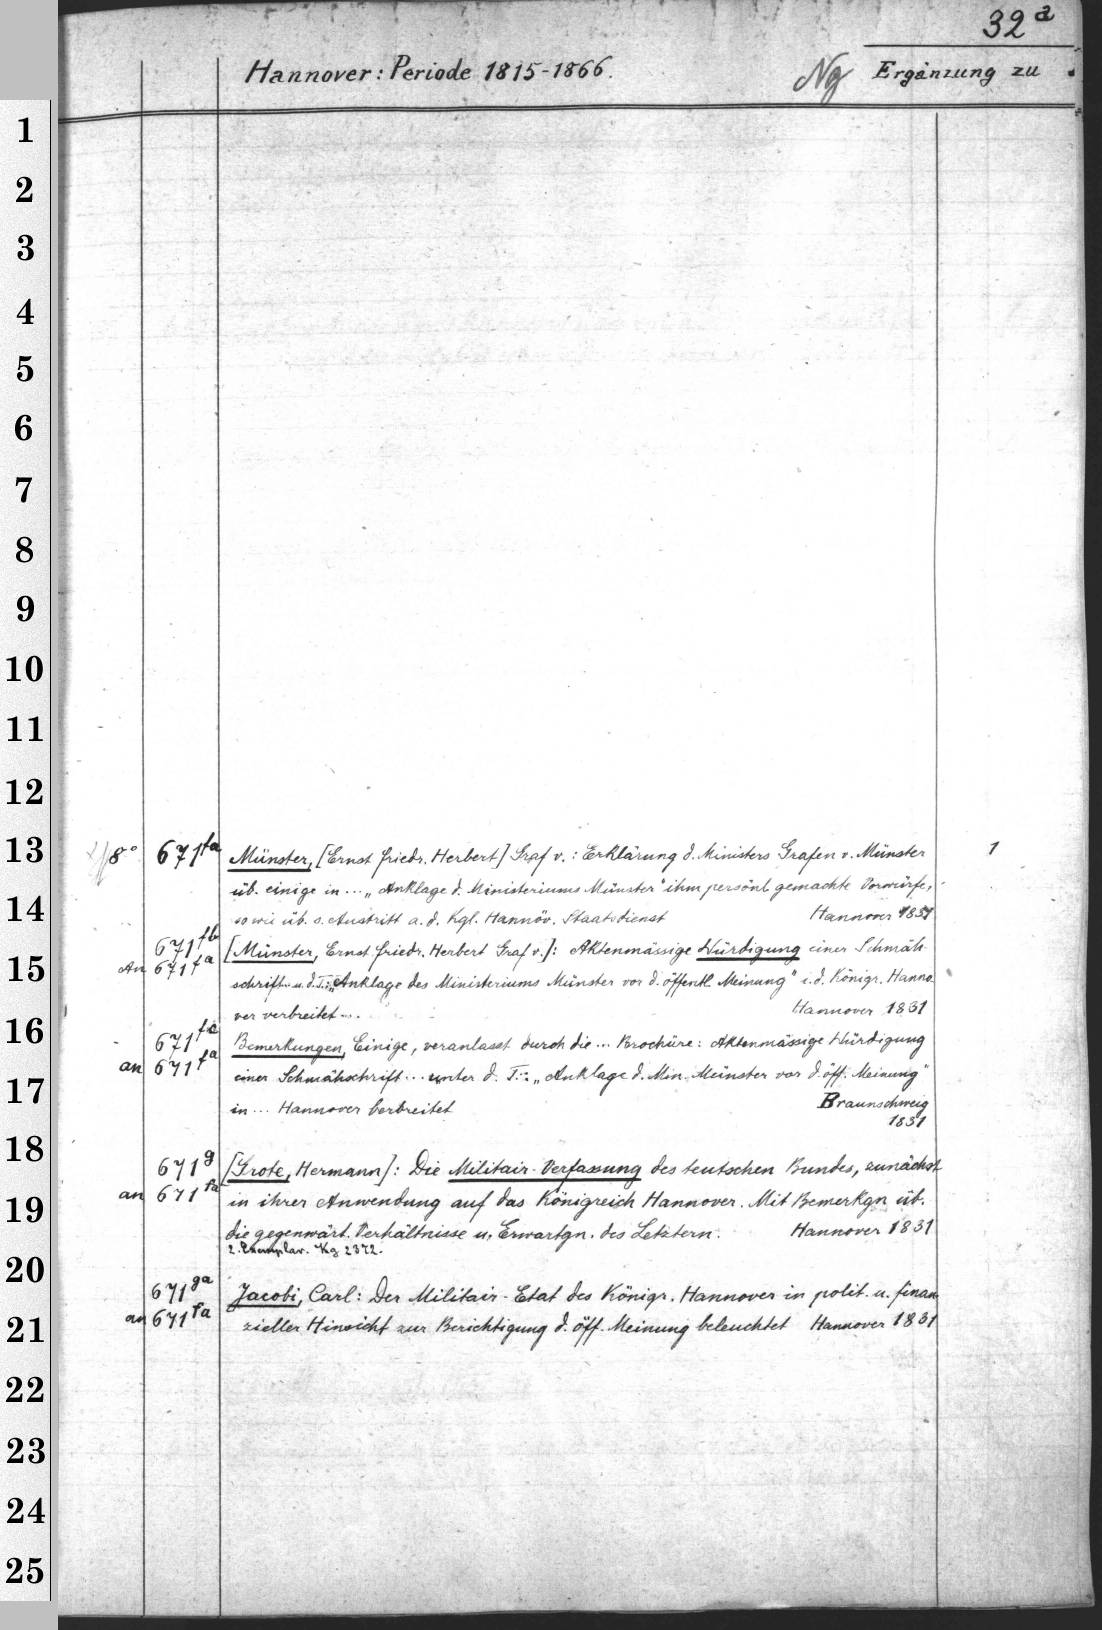 32 a
Hannover: Periode 1815-1866. Ng Ergänzung zu
1
2
3
4
5
6
7
8
9
10
11
12
13
14
15
16
17
18
19
20
21
22
23
24
25
8° 671 fa Münster, [Ernst Friedr. Herbert] Graf v.: Erklärung d. Ministers Grafen v. Münster 1
üb. einige in ... „Anklage d. Ministeriums Münster" ihm persönl. gemachte Vorwürfe,
sowie üb. s. Austritt a. d. Kgl. Hannöv. Staatsdienst Hannover 1831
671 fb [Münster, Ernst Friedr. Herbert Graf v.]: Aktenmässige Würdigung einer Schmäh-
An 671 fa schrift.. u. d. T.: „Anklage des Ministeriums Münster vor d. öffentl. Meinung" i. d. Königr. Hanno-
ver verbreitet ... Hannover 1831
671 fc Bemerkungen, Einige, veranlasst durch die ... Brochüre: Aktenmässige Würdigung
an 671 fa einer Schmähschrift ... unter d. T.: „Anklage d. Min. Münster vor d. öff. Meinung"
in ... Hannover verbreitet Braunschweig
1831
671 g [Grote, Hermann]: Die Militair-Verfassung des teutschen Bundes, zunächst
an 671 fa in ihrer Anwendung auf das Königreich Hannover. Mit Bemerkgn üb.
die gegenwärt. Verhältnisse u. Erwartgn. des Letztern. Hannover 1831
2. Exemplar. Kg 2372.
671 ga Jacobi, Carl: Der Militair-Etat des Königr. Hannover in polit. u. finan-
an 671 fa zieller Hinsicht zur Berichtigung d. öff. Meinung beleuchtet Hannover 1831